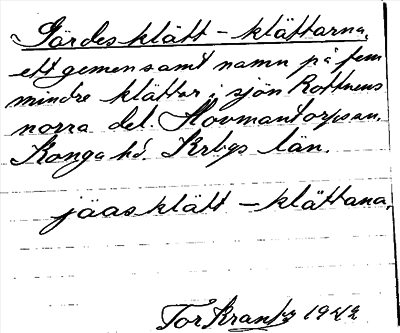 Gärdesklätt - klättarna,
ett gemensamt namn på fem
mindre klättar i sjön Rottnens
norra del. Hovmantorps sn.
Konga hd. Krbgs län.
jäasklätt - klättana,
Tor Krantz 1942